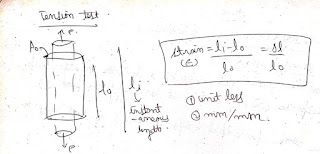 Tension test.
P
A₀
l₀
li
instant
-aneous
length.
P
Strain = li - l₀ = δl
(ε) l₀ l₀
① unit less
② mm/mm.